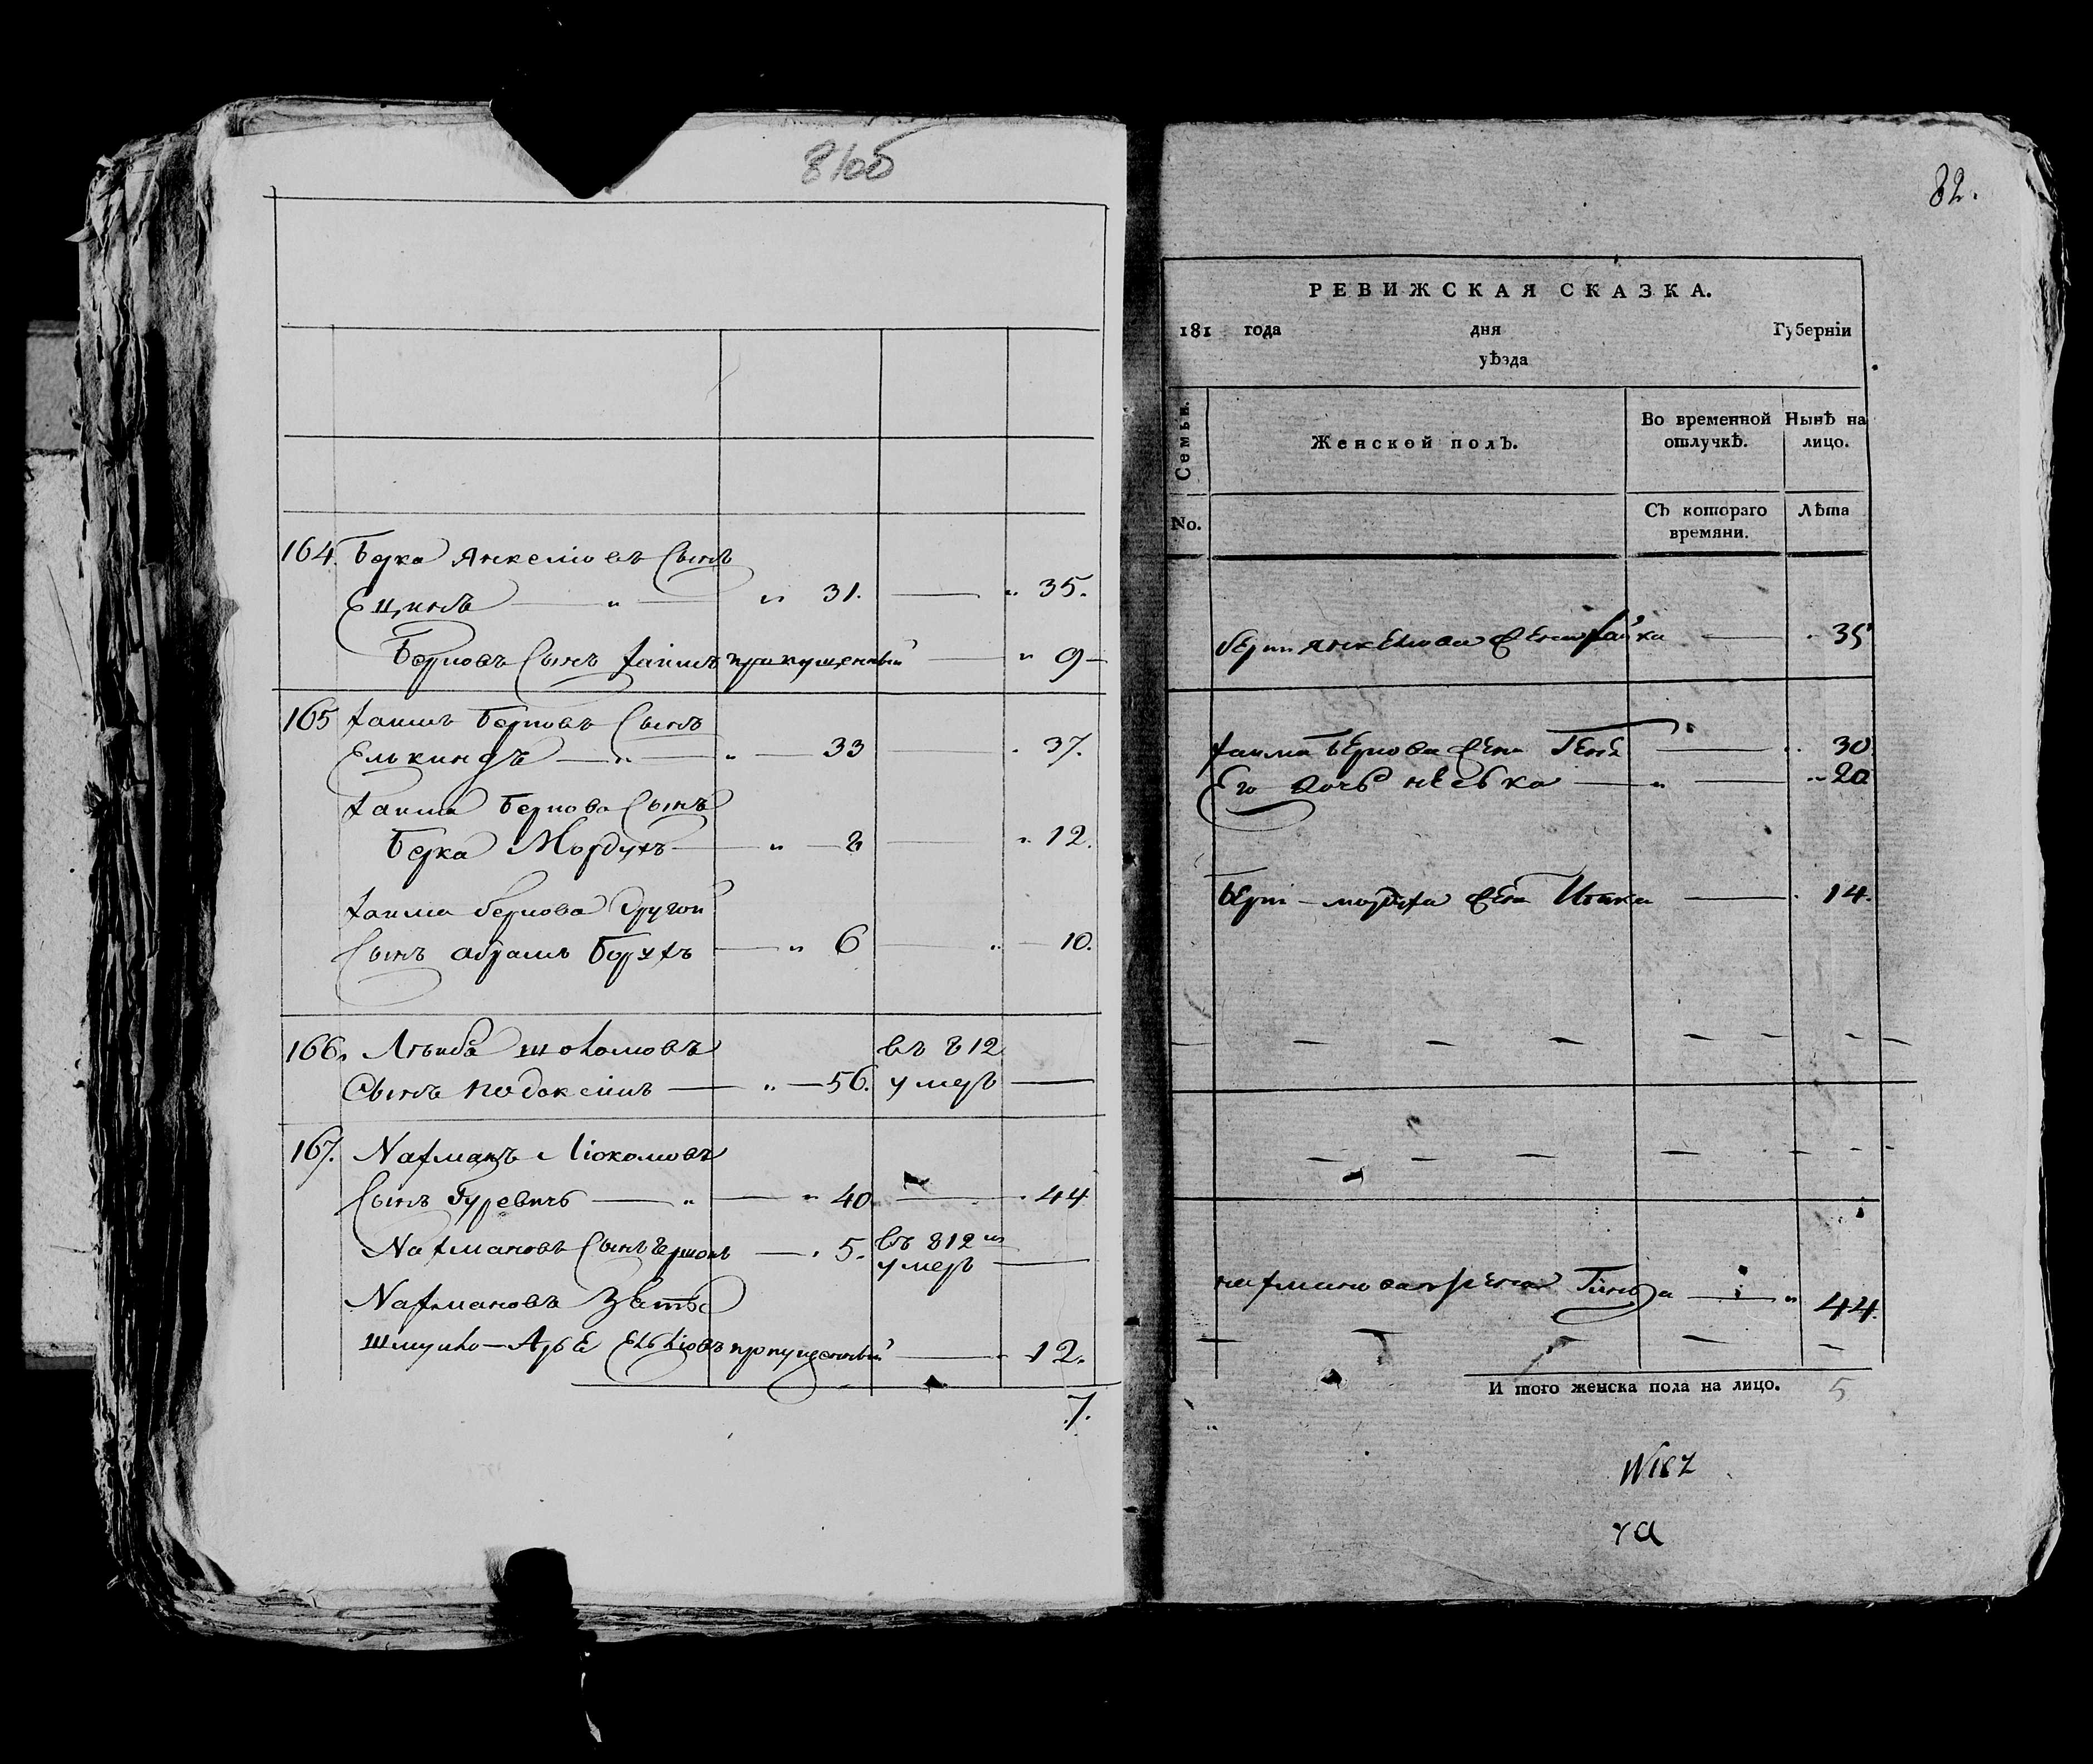 81об
164. Берка Янкелiовъ Сынъ
Ецинъ — " — " 31. — " 35.
Берковъ Сынъ Хаимъ пропущенный — " 9 —
165 Хаимъ Берковъ Сынъ
Елькиндъ — " — " — 33 — " 37.
Хаима Беркова Сынъ
Берка Мордухъ — " — 8 — " 12.
Хаима Беркова Другой
Сынъ Абрамъ Борухъ — " 6 — " — 10.
166. Лейба
въ 812
Сынъ — " — 56. умеръ —
167. Нахманъ
Сынъ Гуревичъ — " — " 40 — " 44
Нахмановъ Сынъ — " 5. въ 812
умеръ —
Нахмановъ Зять
Шмуйло — Арье пропущенный — " 12.
7.
82.
РЕВИЖСКАЯ СКАЗКА.
181 года дня Губерніи
уѣзда
Семьи. Женской полъ. Во временной отлучкѣ. Нынѣ на лицо.
No. Съ котораго времяни. Лѣта
Берки Янкелiова жена — " 35
Хаима Беркова жена Геня — " 30
Его дочь — " — " 20
Берки — Мордуха жена Итка — " 14.
— — — — — — — —
— — — — — — —
Нахманова жена — " 44.
— — — — —
И того женска пола на лицо. 5